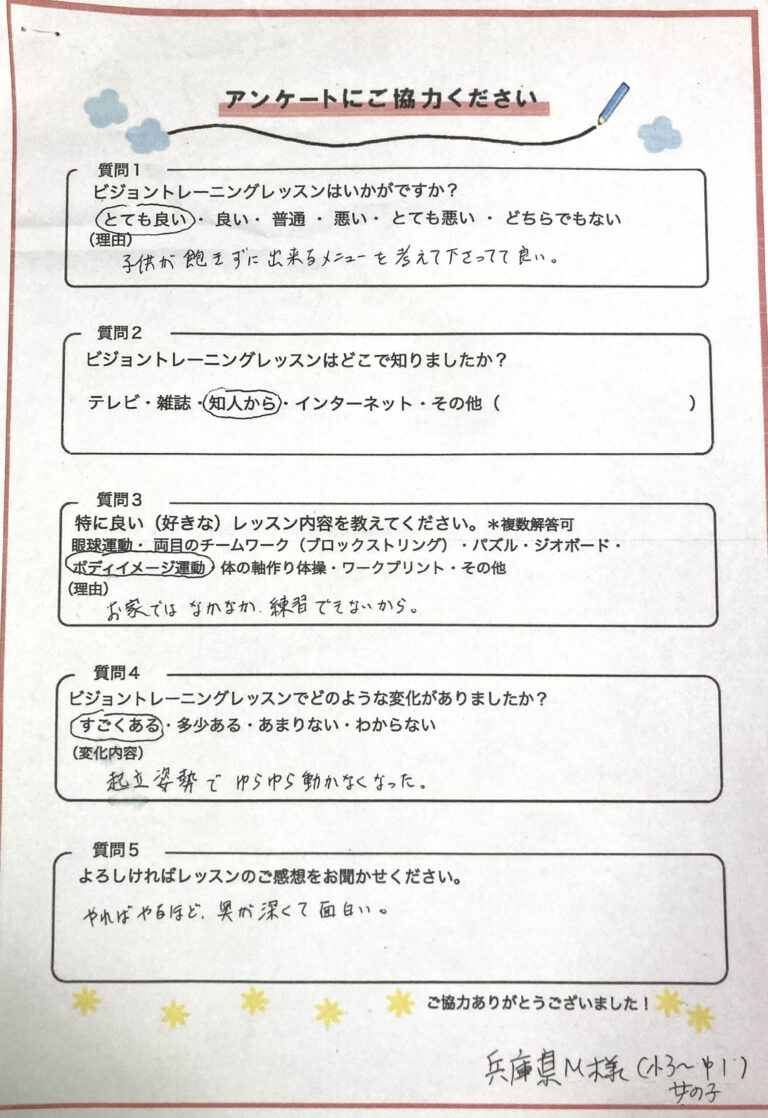 アンケートにご協力ください
質問1
ビジョントレーニングレッスンはいかがですか？
とても良い・ 良い・ 普通 ・ 悪い・ とても悪い ・ どちらでもない
（理由）
子供が飽きずに出来るメニューを考えて下さってて良い。
質問2
ビジョントレーニングレッスンはどこで知りましたか？
テレビ・雑誌・知人から・インターネット・その他（ ）
質問3
特に良い（好きな）レッスン内容を教えてください。＊複数解答可
眼球運動・ 両目のチームワーク（ブロックストリング）・パズル・ジオボード・
ボディイメージ運動・体の軸作り体操・ワークプリント・その他
（理由）
お家ではなかなか練習できないから。
質問4
ビジョントレーニングレッスンでどのような変化がありましたか？
すごくある・多少ある・あまりない・わからない
（変化内容）
起立姿勢でゆらゆら動かなくなった。
質問5
よろしければレッスンのご感想をお聞かせください。
やればやるほど、奥が深くて面白い。
ご協力ありがとうございました！
兵庫県M様（小3〜中1）
女の子